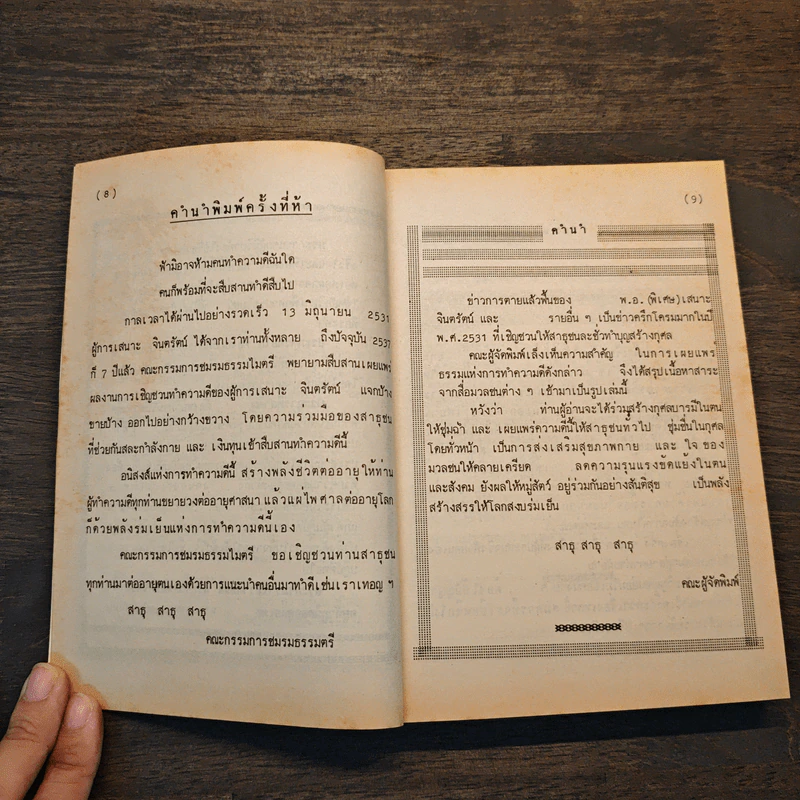 (8)
คำนำพิมพ์ครั้งที่ห้า
ฟ้ามิอาจห้ามคนทำความดีฉันใด
คนก็พร้อมที่จะสืบสานทำดีสืบไป
กาลเวลาได้ผ่านไปอย่างรวดเร็ว 13 มิถุนายน 2531
ผู้การเสนาะ จินตรัตน์ ได้จากเราท่านทั้งหลาย ถึงปัจจุบัน 2537
ก็ 7 ปีแล้ว คณะกรรมการชมรมธรรมไมตรี พยายามสืบสานเผยแพร่
ผลงานการเชิญชวนทำความดีของผู้การเสนาะ จินตรัตน์ แจกบ้าง
ขายบ้าง ออกไปอย่างกว้างขวาง โดยความร่วมมือของสาธุชน
ที่ช่วยกันสละกำลังกาย และ เงินทุนเข้าสืบสานทำความดีนี้
อนิสงส์แห่งการทำความดีนี้ สร้างพลังชีวิตต่ออายุให้ท่าน
ผู้ทำความดีทุกท่านขยายวงต่ออายุศาสนา แล้วแผ่ไพศาลต่ออายุโลก
ก็ด้วยพลังร่มเย็นแห่งการทำความดีนี้เอง
คณะกรรมการชมรมธรรมไมตรี ขอเชิญชวนท่านสาธุชน
ทุกท่านมาต่ออายุตนเองด้วยการแนะนำคนอื่นมาทำดีเช่นเราเทอญ ฯ
สาธุ สาธุ สาธุ
คณะกรรมการชมรมธรรมตรี
(9)
คำนำ
ข่าวการตายแล้วฟื้นของ พ.อ.(พิเศษ)เสนาะ
จินตรัตน์ และ รายอื่น ๆ เป็นข่าวครึกโครมมากในปี
พ.ศ.2531 ที่เชิญชวนให้สาธุชนละชั่วทำบุญสร้างกุศล
คณะผู้จัดพิมพ์เล็งเห็นความสำคัญ ในการเผยแพร่
ธรรมแห่งการทำความดีดังกล่าว จึงได้สรุปเนื้อหาสาระ
จากสื่อมวลชนต่าง ๆ เข้ามาเป็นรูปเล่มนี้
หวังว่า ท่านผู้อ่านจะได้ร่วมสร้างกุศลบารมีในตน
ให้ชุ่มฉ่ำ และ เผยแพร่ความดีนี้ให้สาธุชนทั่วไป ชุ่มชื่นในกุศล
โดยทั่วหน้า เป็นการส่งเสริมสุขภาพกาย และ ใจ ของ
มวลชนให้คลายเครียด ลดความรุนแรงขัดแย้งในตน
และสังคม ยังผลให้หมู่สัตว์ อยู่ร่วมกันอย่างสันติสุข เป็นพลัง
สร้างสรรให้โลกสงบร่มเย็น
สาธุ สาธุ สาธุ
คณะผู้จัดพิมพ์